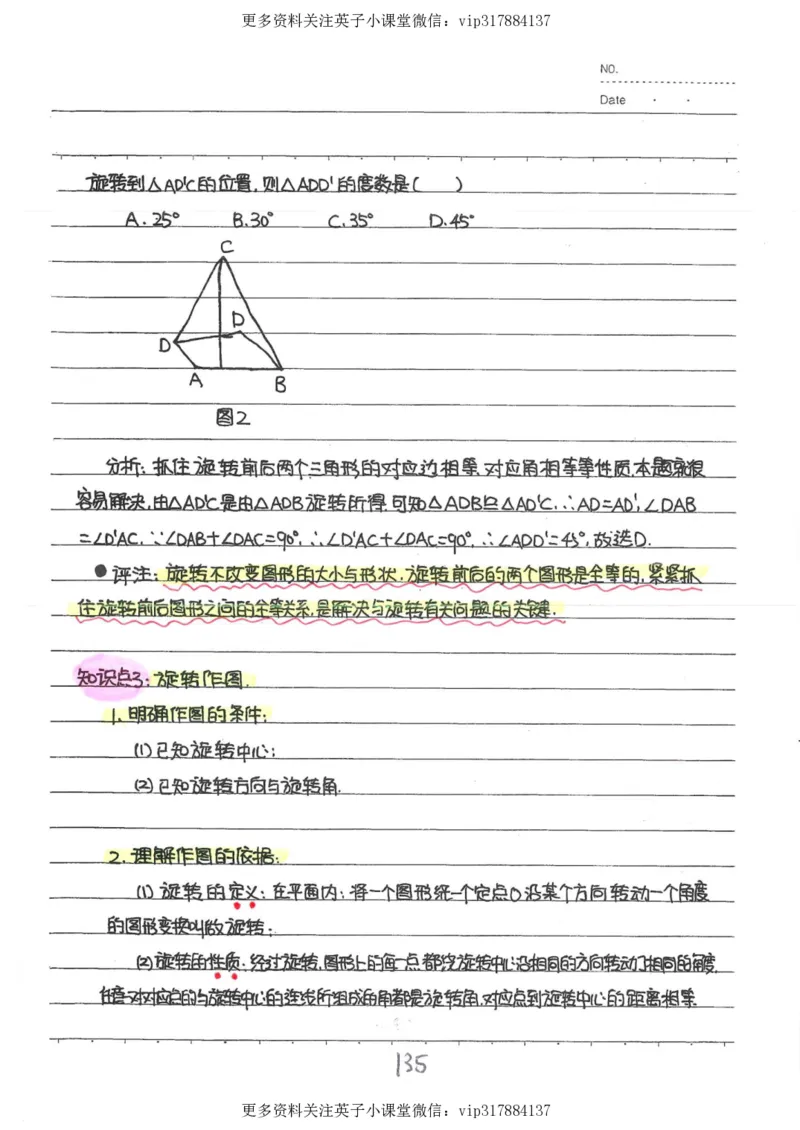 更多资料关注英子小课堂微信：vip317884137
NO.
Date
旋转到△AD'C的位置,则△ADD'的度数是(　　)
A.25° B.30° C.35° D.45°
C
D
D
A
B
图2
分析:抓住旋转前后两个三角形的对应边相等、对应角相等等性质,本题就很
容易解决,由△AD'C是由△ADB旋转所得,可知△ADB≌△AD'C,∴AD=AD',∠DAB
=∠D'AC,∵∠DAB+∠DAC=90°,∴∠D'AC+∠DAC=90°,∴∠ADD'=45°,故选D.
●评注:旋转不改变图形的大小与形状,旋转前后的两个图形是全等的,紧紧抓
住旋转前后图形之间的全等关系,是解决与旋转有关问题的关键.
知识点3:旋转作图.
1.明确作图的条件:
(1)已知旋转中心;
(2)已知旋转方向与旋转角.
2.理解作图的依据:
(1)旋转的定义:在平面内;将一个图形绕一个定点O沿某个方向转动一个角度
的图形变换叫做旋转;
(2)旋转的性质:经过旋转,图形上的每一点都绕旋转中心沿相同的方向转动了相同的角度,
任意一对对应点的与旋转中心的连线所组成的角都是旋转角,对应点到旋转中心的距离相等.
135
更多资料关注英子小课堂微信：vip317884137